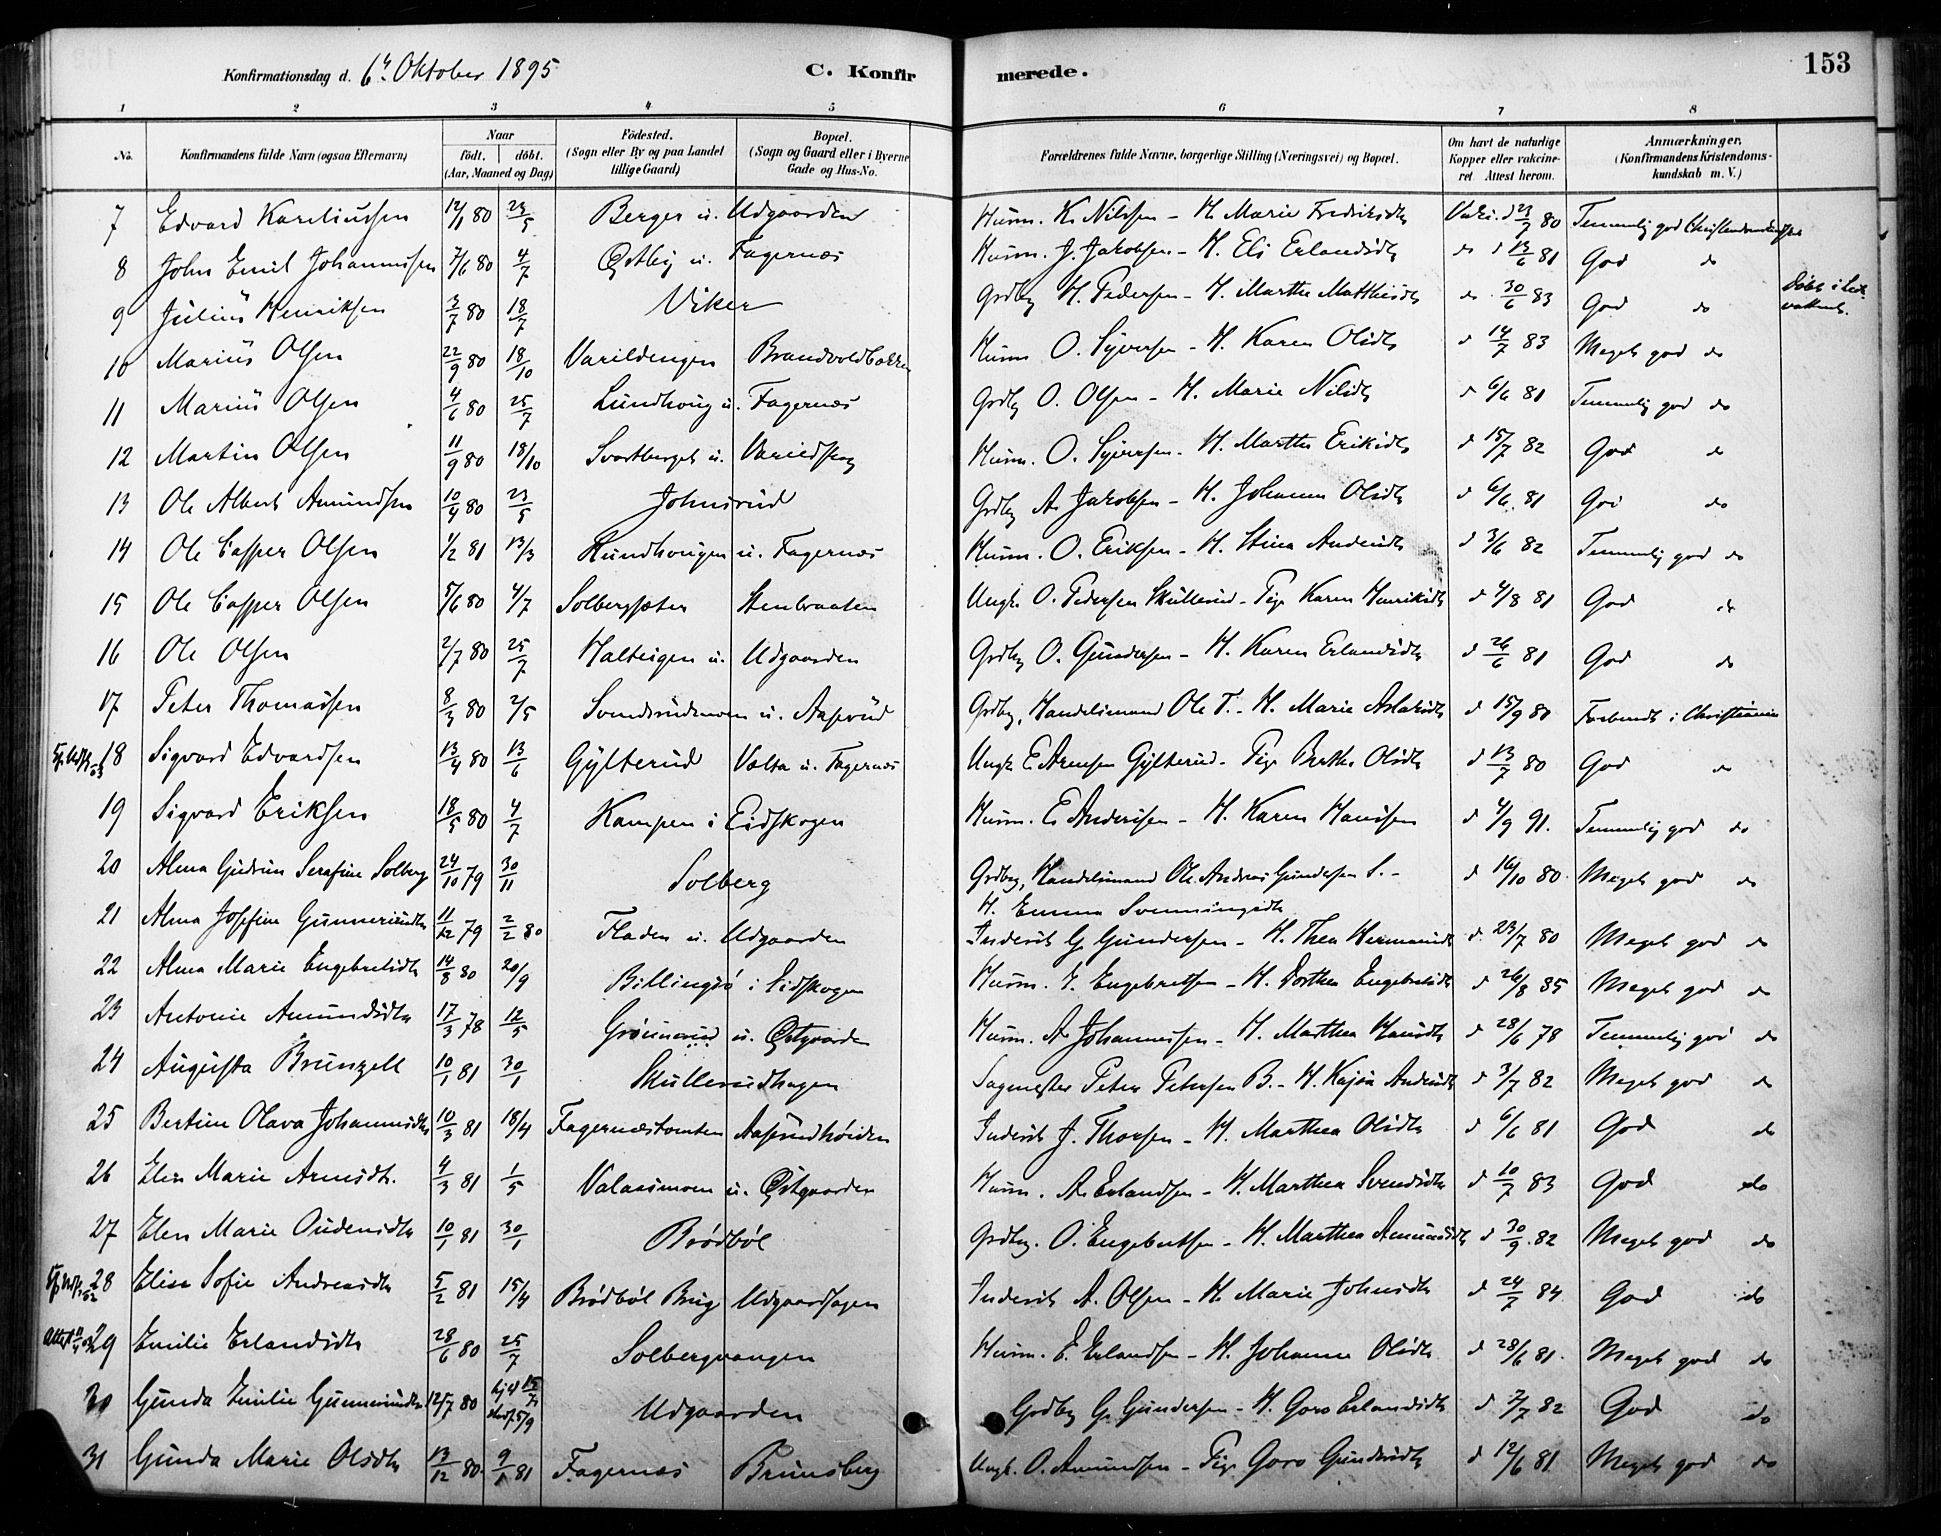 Konfirmationsdag d. 6te Oktober 1895 C. Konfirmerede. 153
1 2 3 4 5 6 7 8
No. Konfirmandens fulde Navn (ogsaa Efternavn) Naar födt. döbt. (Aar, Maaned og Dag) Födested. (Sogn eller By og paa Landet tillige Gaard) Bopæl. (Sogn og Gaard eller i Byerne Gade og Hus-No. Forældrenes fulde Navne, borgerlige Stilling (Næringsvei) og Bopæl. Om havt de naturlige Kopper eller vakcineret. Attest herom. Anmærkninger, (Konfirmandens Kristendomskundskab m. V.)
7 Edvard Kareliussen 12/11 80 23/5 Berger u. Udgaarden Husm. K. Nilssen - H. Marie Fredriksdtr Vaks. d 23/7 80 Temmelig god
8 John Emil Johannissen 7/6 80 4/7 Østby u. Fagernæs Husm. J. Jakobsen - H. Eli Erlandsdtr do d 13/6 81 God do
9 Julius Henriksen 3/7 80 18/7 Viker Grdbr H. Pedersen - H. Marthe Matthisdtr do 30/6 83 God do Döbt i
10 Marius Olsen 22/9 80 18/10 Varildengen Brandvoldbakken Husm O. Syversen - H. Karen Olsdtr d 14/7 83 Meget god do
11 Marius Olsen 4/6 80 25/7 Lundhoug u. Fagernæs Grdbr O. Olsen - H. Marie Nilsdtr d 6/6 81 Temmelig god do
12 Martin Olsen 11/9 80 18/10 Svartberget u. Varildskog Husm. O. Syversen - H. Marthe Eriksdtr d 15/7 82 God do
13 Ole Albert Amundsen 10/4 80 23/5 Johnsrud Grdbr A. Jakobsen - H. Johanne Olsdtr d 6/6 81 God do
14 Ole Casper Olsen 1/2 81 13/3 Rundhougen u. Fagernæs Husm. O. Eriksen - H. Stina Andersdtr d 3/6 82 Temmelig god do
15 Ole Casper Olsen 5/6 80 4/7 Solbergsæter Stenbraaten Ungk. O. Pedersen Skullerud - Pige Karen Henriksdtr d 4/8 81 God do
16 Ole Olsen 2/7 80 25/7 Halteigen u. Udgaarden Grdbr O. Gundersen - H. Karen Erlandsdtr d 26/6 81 God do
17 Peter Thomassen 8/3 80 2/5 Svendsrudmoen u. Aaserud Grdbr, Handelsmand Ole T. - H. Marie Aslaksdtr d 15/9 80 Forbundt i Christiania
18 Sigvard Edvardsen 13/4 80 13/6 Gylterud Valta u. Fagernæs Ungk E. Arnesen Gylterud - Pige Berthe Olsdtr d 13/7 80 God do
19 Sigvard Eriksen 18/5 80 4/7 Kampen i Eidskogen Husm. E. Andersen - H. Karen Hansen d 4/9 91. Temmelig god do
20 Alma Gudrun Serafine Solberg 24/10 79 30/11 Solberg Grdbr, Handelsmand Ole Andreas Gundersen S. - d 16/10 80 Meget god do
H. Emma Svenningsdtr
21 Alma Josefine Gunneriusdtr 11/12 79 2/2 80 Fladen u. Udgaarden Inderst G. Gundersen - H. Thea Hermansdtr d 23/7 80 Meget god do
22 Alma Marie Engebretsdtr 14/8 80 20/9 Billingsjö i Eidskogen Husm. E. Engebretsen - H. Dorthea Engebretsdtr d 26/8 85 Meget god do
23 Antonie Amundsdtr 17/3 78 12/5 Grönnerud u. Østgaarden Husm. A. Johannessen - H. Marthea Hansdtr d 28/6 78 Temmelig god do
24 Augusta Brunzell 10/1 81 30/1 Skullerudhagen Sagmester Peter Petersen B. - H. Kajsa Andersdtr d 3/7 82 Meget god do
25 Bertine Olava Johannesdtr 10/3 81 18/4 Fagernæstomten Aaserudhöiden Inderst J. Thorsen - H. Marthea Olsdtr d 6/6 81 God do
26 Elen Marie Arnesdtr. 4/3 81 1/5 Valaasmoen u. Østgaarden Husm. A. Erlandsen - H. Marthea Svendsdtr d 10/7 83 God do
27 Elen Marie Oudensdtr 10/1 81 30/1 Brödböl Grdbr. O. Engebretsen - H. Marthea Amundsdtr d 30/9 82 Meget god do
28 Elise Sofie Andreasdtr 5/2 81 15/4 Brödböl Brug Udgaardsagen Inderst A. Olsen - H. Marie Johnsdtr d 24/7 84 God do
29 Emilie Erlandsdtr 28/6 80 25/7 Solbergvangen Husm. E. Erlandsen - H. Johanne Olsdtr d 28/6 81. Meget god do
30 Gunda Emilie Gunneriusdtr 12/7 80 Udgaarden Grdbr G. Gundersen - H. Goro Erlandsdtr d 2/7 82 God do
31 Gunda Marie Olsdtr 13/12 80 9/1 81 Fagernæs Brunsberg Ungk. O. Amundsen - Pige Goro Gundersdtr d 12/6 81 Meget god do